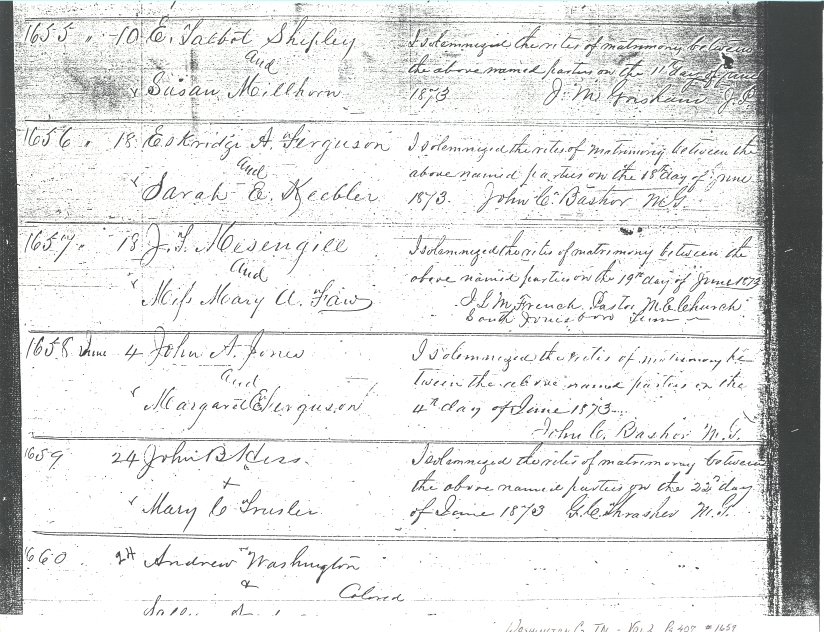 1655 " 10 E. Talbot Shipley
And
Susan Millhorn
I solemnized the rites of matrimony between
the above named parties on the 11th day of June
1873 J. M. Gresham J.P.
1656 " 18 Eskridge A. Ferguson
And
Sarah E. Keebler
I solemnized the rites of matrimony between the
above named parties on the 18th day of June
1873. John C. Bashor M.G.
1657 " 18 J. F. Mesengill
And
Miss Mary A. Faw
I solemnized the rites of matrimony between the
above named parties on the 19th day of June 1873
French Pastor M.E. Church
Jonesboro Tenn
1658 June 4 John A. Jones
And
Margaret E Ferguson
I solemnized the rites of matrimony be
tween the above named parties on the
4th day of June 1873
John C. Bashor M.G.
1659 24 John B Hess
+
Mary C Trusler
I solemnized the rites of matrimony between
the above named parties on the 22d day
of June 1873 G. C. Thrasher M.G.
1660 24 Andrew Washington
&
Colored
Washington Co TN - Vol 2 Pg 407 #1659